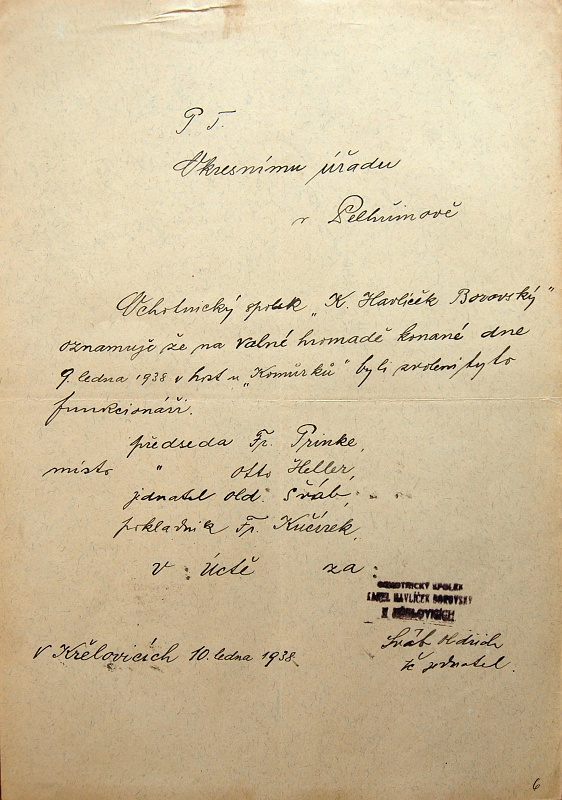 P T.
Okresnímu úřadu
v Pelhřimově
Ochotnický spolek „K. Havlíček Borovský"
oznamuje že na valné hromadě konané dne
9. ledna 1938 v host u „Komůrků" byli zvoleni tyto
funkcionáři.
předseda Fr. Prinke,
místo " Otto Heller,
jednatel Old. Šváb,
pokladník Fr. Kučírek,
V Úctě za:
OCHOTNICKÝ SPOLEK
KAREL HAVLÍČEK BOROVSKÝ
V KŘELOVICÍCH
Šváb Oldrich
tč jednatel.
V Křelovicích 10. ledna 1938
6